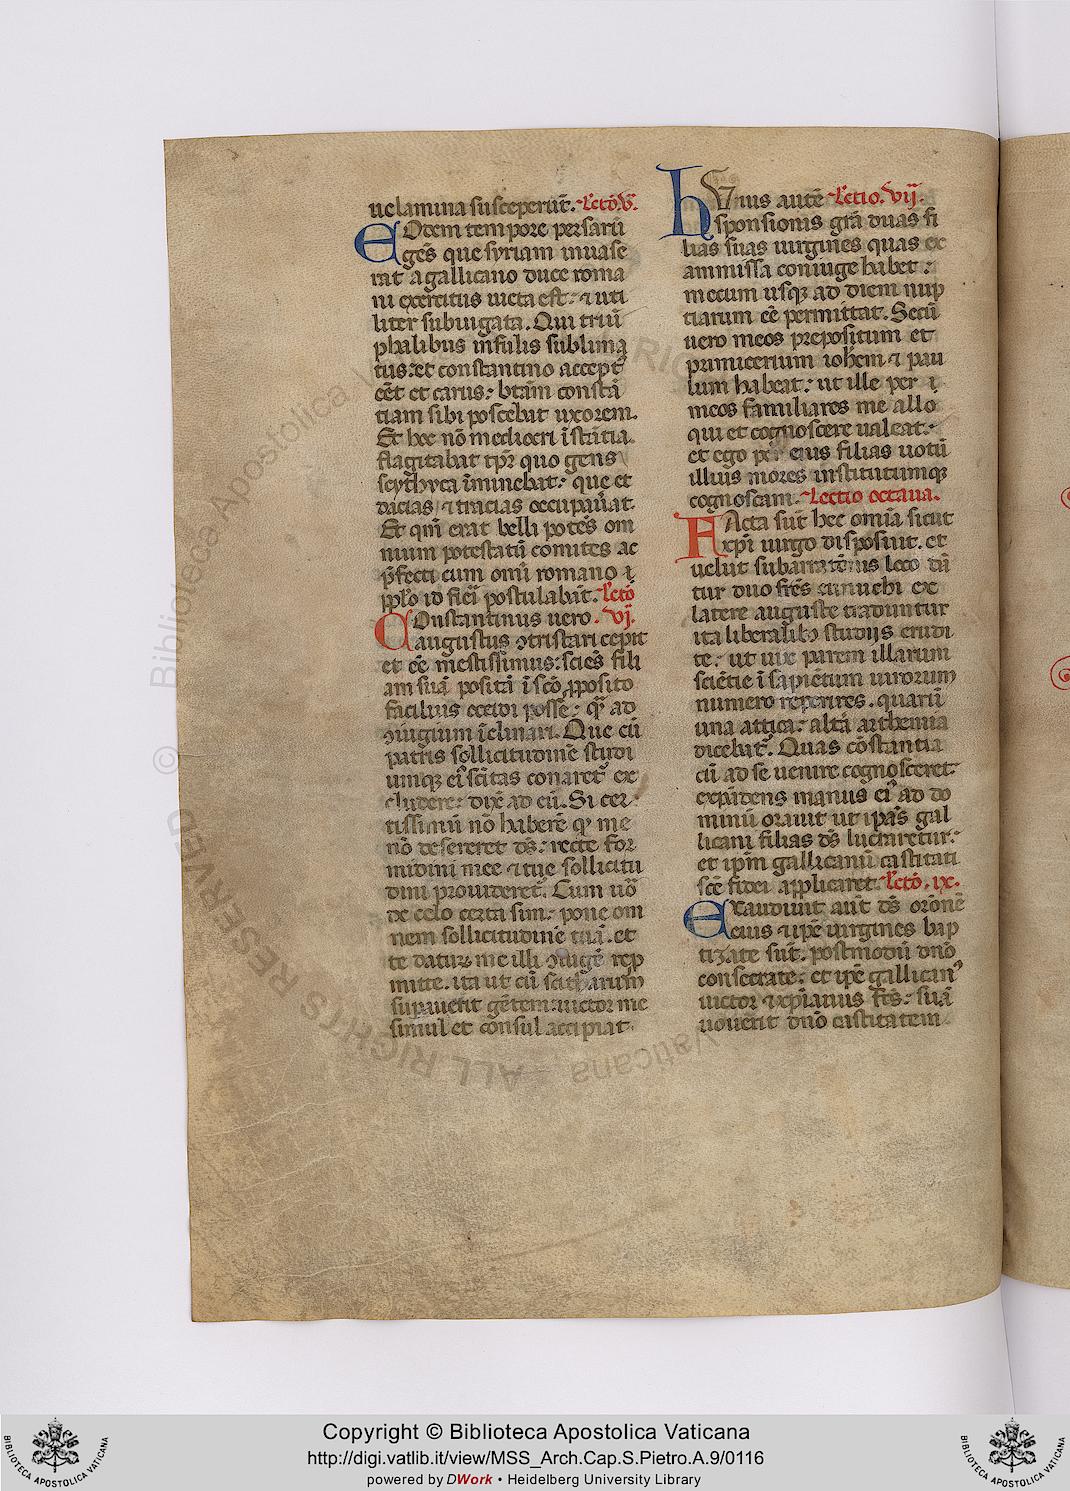 uelamina susceperūt. Lectō. v̄.
EOdem tempore persarū
gēs que syriam inuase
rat a gallicano duce roma
ni exercitus uicta est: ⁊ uti
liter subiugata. Qui triū
phalibus infulis sublima
tus: et constantino accept᷒
eēt et carus: btām constā
tiam sibi poscebat uxorem.
Et hec nō mediocri īstātia
flagitabat tp̄r quo gens
scythyca īminebat: que et
dacias ⁊ tracias occupauāt.
Et qm̄ erat belli potēs om
nium potestatū comites ac
p̄fecti cum omī romano
pp̄lo id fieri postulabāt. Lectō
COnstantinus uero. vj̄.
augustus ↄtristari cepit
et eē mestissimus: sciēs fili
am suā positā ī scō p̱posito
facilius occidi posse: qᷓ ad
ↄiugium īclinari. Que cū
patris sollicitudinē studi
umqꝫ ei᷒ scītas conaret᷒ ex
cludere: dixē ad eū. Si cer
tissimū nō haberē qꝫ me
nō desereret dš: recte for
midini mee ⁊ tue sollicitu
dini prouideret᷒. Cum uō
de celo certa sim: pone om
nem sollicitudinē tuā. et
te daturꝫ me illi ↄiugē rep
mitte. ita ut cū scitharum
supauerit gētem: uictor me
simul et consul accipiat.
hVius autē Lectio. vij̄.
sponsionis grā duas fi
lias suas uirgines quas ex
ammissa coniuge habet:
mecum usqꝫ ad diem nup
tiarum eē permittat. Secū
uero meos prepositum et
primicerium ioh̄em ⁊ pau
lum habeat: ut ille per
meos familiares me allo
qui et cognoscere ualeat:
et ego per eius filias uotū
illius mores institutumqꝫ
cognoscam. Lectio octaua.
FActa sūt hec omīa sicut
xp̄i uirgo disposuit. et
uelut subarratōnis leto dū
tur duo frēs euuuehi ex
latere auguste traduntur
ita liberalibꝫ studiis erudi
te: ut uix parem illarum
sciētie ī sapiētium uirorum
numero reperires. quarū
una attica: altā arthemia
dicebat᷒. Quas cōstantia
cū ad se uenire cognosceret
expādens manus ei᷒ ad do
minū orauit ut ip̄as gal
licani filias dš lucraretur:
et ip̄m gallicanū castitati
scē fidei applicaret. Lectō. ix.
EXaudiuit aūt dš orōnē
eius ⁊ ip̄e uirgines bap
tizate sūt. postmodū dnō
consecrate: et ip̄e gallican᷒
uictor ⁊ xp̄ianus fc̄s: suā
uouerit dnō castitatem.
© Biblioteca Apostolica Vaticana
ALL RIGHTS RESERVED
Copyright © Biblioteca Apostolica Vaticana
http://digi.vatlib.it/view/MSS_Arch.Cap.S.Pietro.A.9/0116
powered by DWork • Heidelberg University Library
BIBLIOTECA APOSTOLICA VATICANA
BIBLIOTECA APOSTOLICA VATICANA